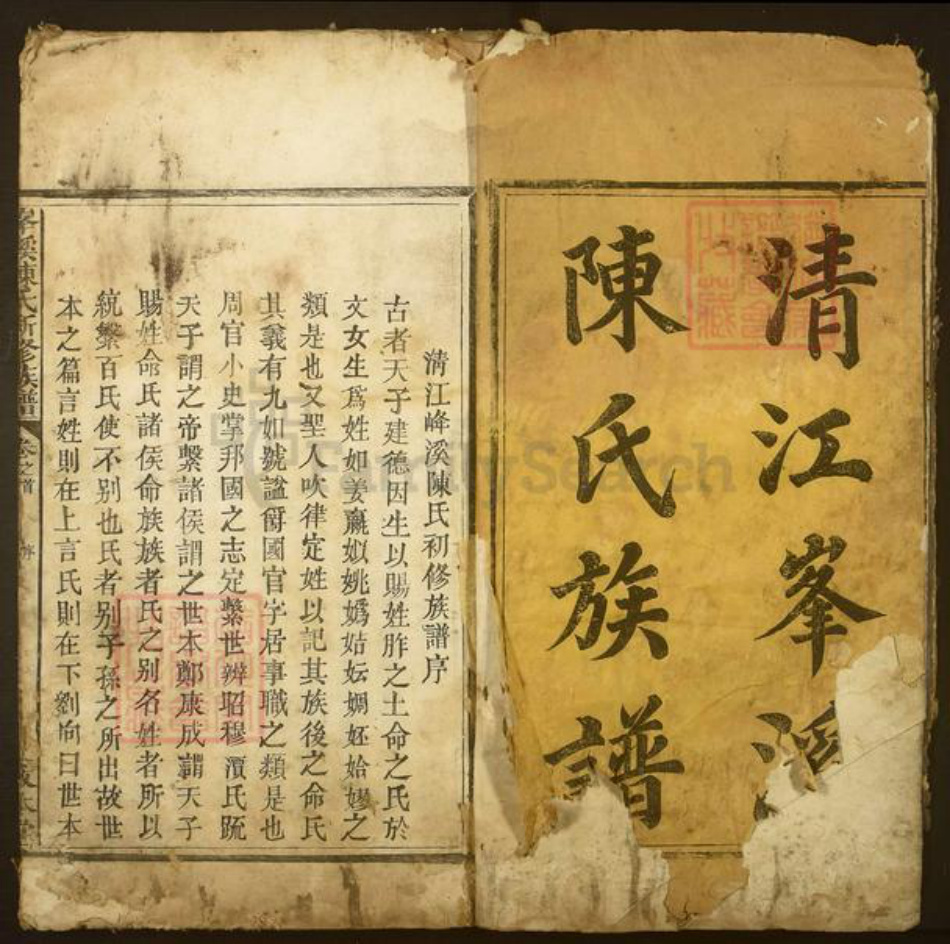 清江峯溪
陳氏族譜
清江峰溪陳氏初修族譜序
古者天子建德因生以賜姓胙之土命之氏於
文女生爲姓如姜嬴姒姚嬀姞妘婤妚始嫪之
類是也又聖人吹律定姓以記其族後之命氏
其義有九如號謚爵國官字居事職之類是也
周官小史掌邦國之志定繫世辨昭穆賈氏䟽
天子謂之帝繫諸侯謂之世本鄭康成謂天子
賜姓命氏諸侯命族族者氏之别名姓者所以
統繫百氏使不别也氏者别子孫之所出故世
本之篇言姓則在上言氏則在下劉向曰世本
峯溪陳氏新修族譜 卷之首 序
FamilySearch